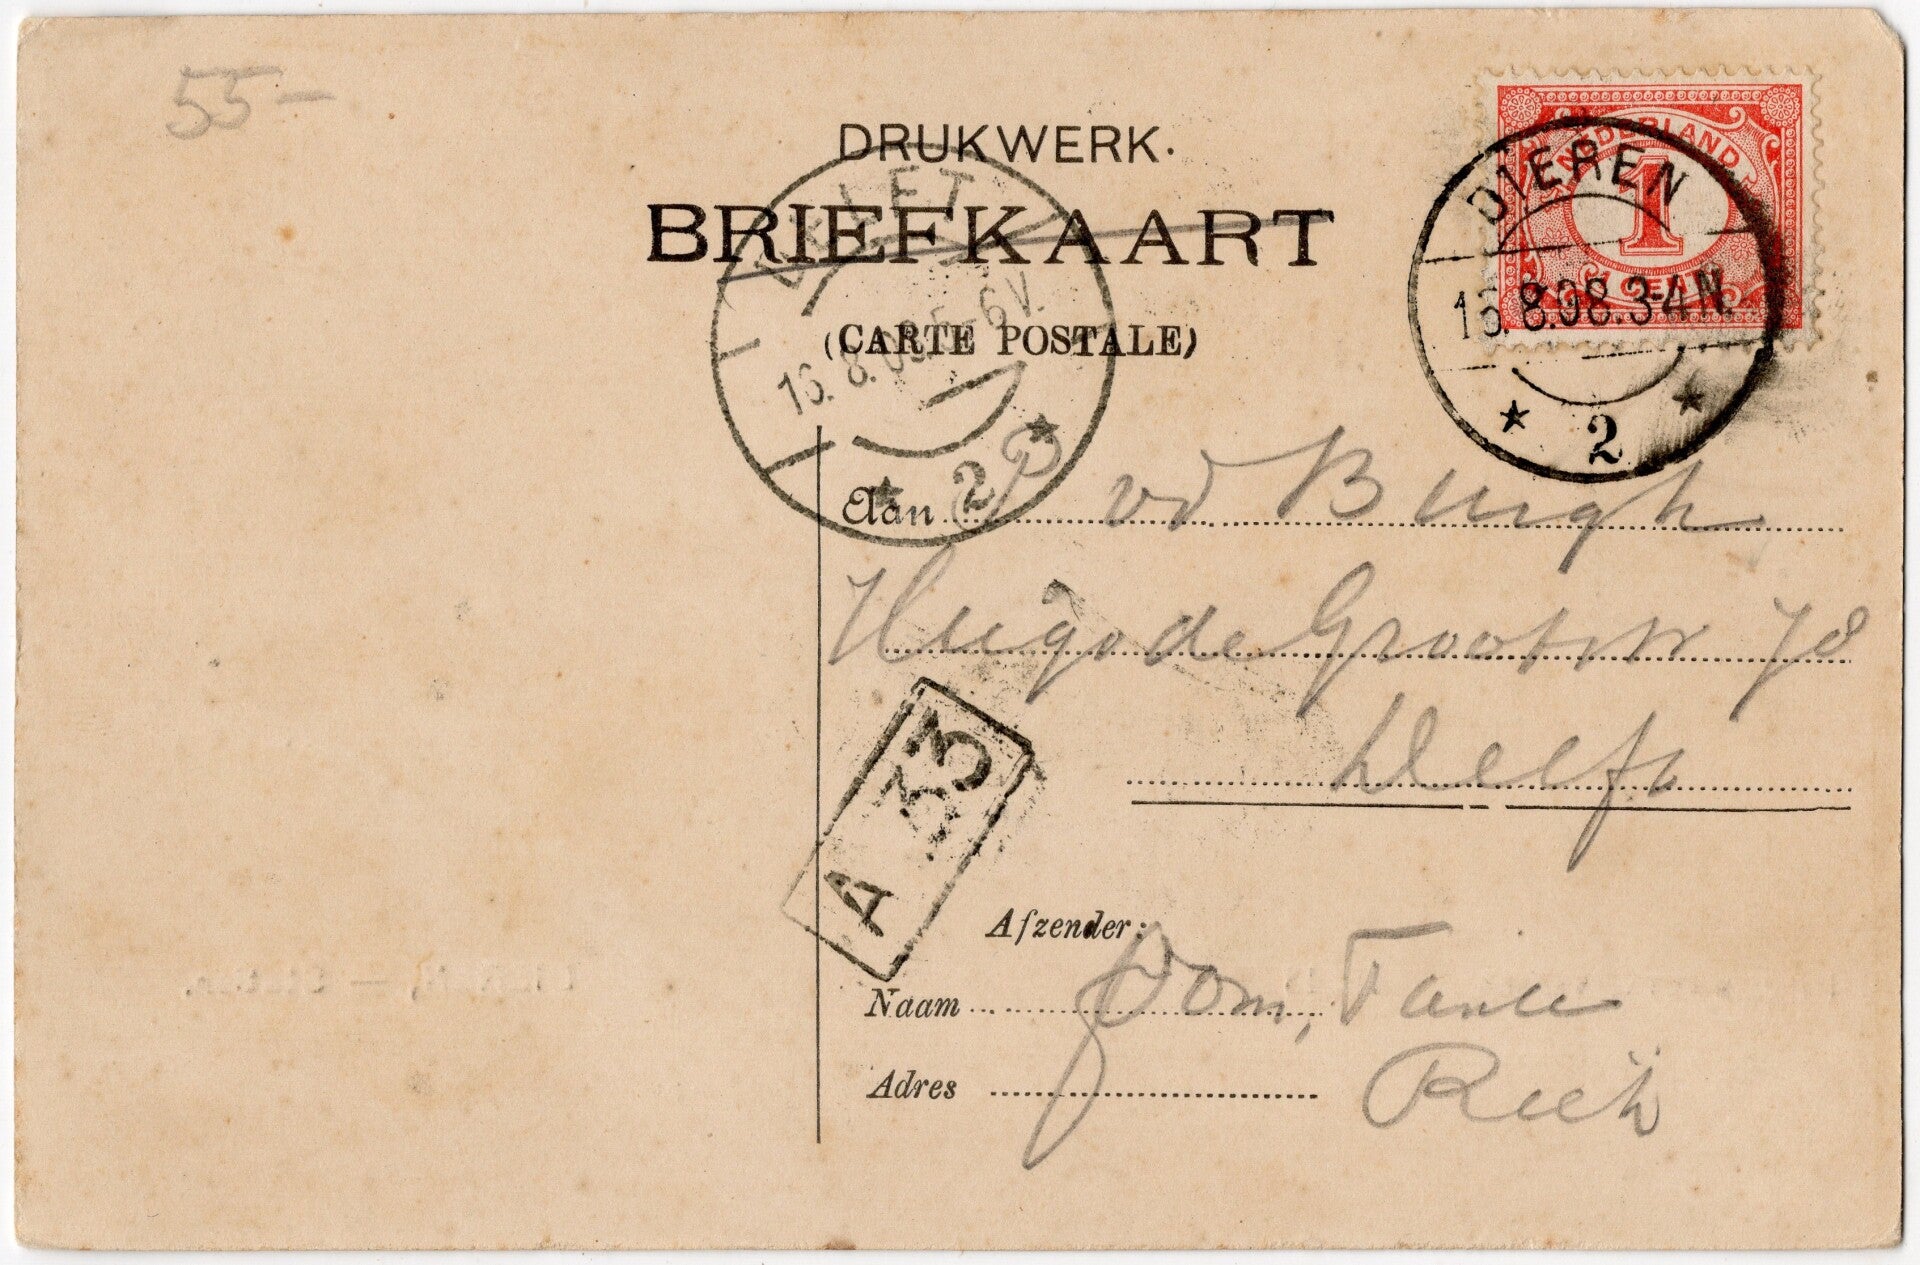 55-
DRUKWERK.
BRIEFKAART
(CARTE POSTALE)
NEDERLAND
1
1 CENT
DIEREN
8.08.3-4N.
2
DELFT
16. 8. 08 5-6V.
2
Aan vd Burgh
Hugo de Grootstr 78
Delft
A 33
Afzender:
Naam Oom, Tante
Adres